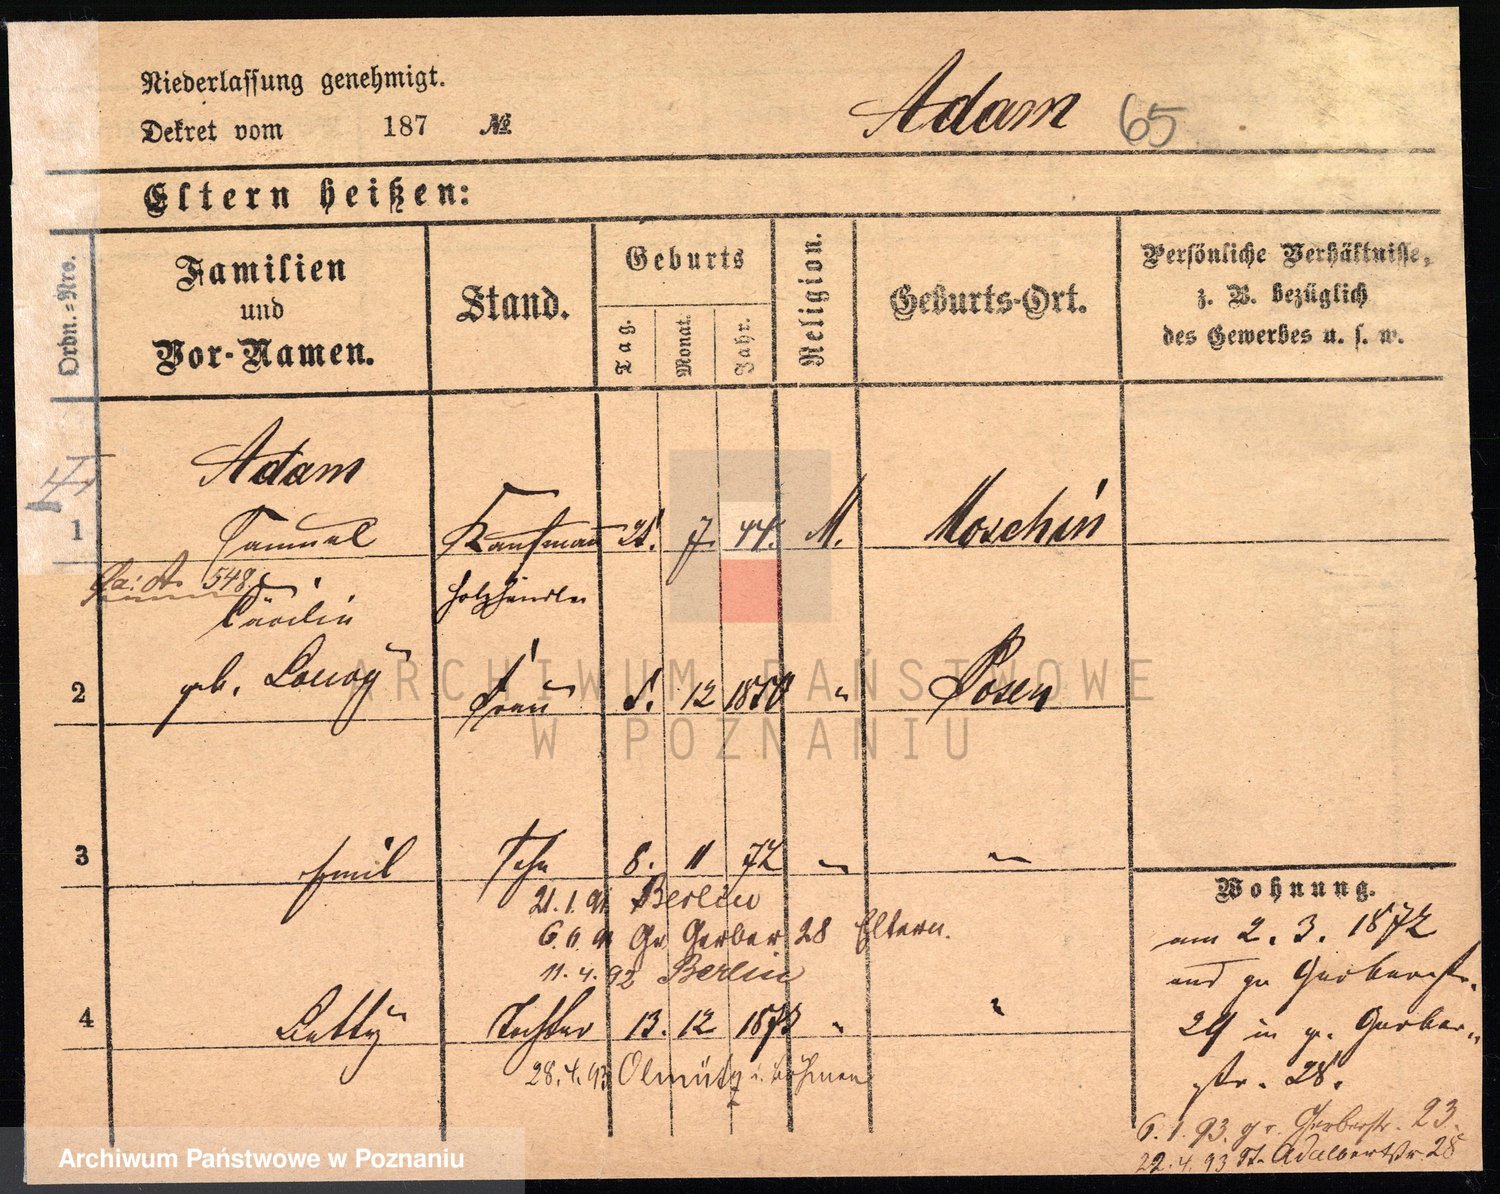 Niederlassung genehmigt.
Dekret vom 187 №
Adam 65
Eltern heißen:
Ordn.-Nro.
Familien
und
Vor-Namen.
Stand.
Geburts
Tag.
Monat.
Jahr.
Religion.
Geburts-Ort.
Persönliche Verhältnisse,
z. B. bezüglich
des Gewerbes u. s. w.
Adam
1 Samuel Kaufmann 7. 44. M. Moschin
548. Holzhändler
Cäcilie
2 geb. Frau 12 1850 " Posen
3 Emil Sohn 8. 11 72 " "
21.1.91 Berlin
Gr Gerber 28 Eltern.
11.4.92 Berlin
4 Betty Tochter 13. 12 1873 " "
28.4.93 Olmütz i. Böhmen
Wohnung.
am 2. 3. 1872
Gerberstr.
29 in gr. Gerber-
str. 28.
6.1.93. gr. Gerberstr. 23.
22.4.93 St. Adalbertstr. 28
ARCHIWUM PAŃSTWOWE
W POZNANIU
Archiwum Państwowe w Poznaniu